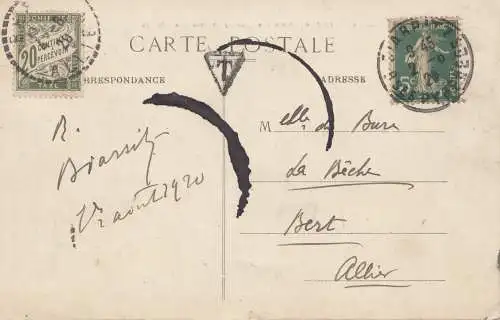 CHIFFRE
20
CENTIMES
À PERCEVOIR
CARTE POSTALE
CORRESPONDANCE
ADRESSE
T
BIARRITZ
Melle de Bure
La Bêche
Bert
Allier
R.
Biarritz
12 août 1920